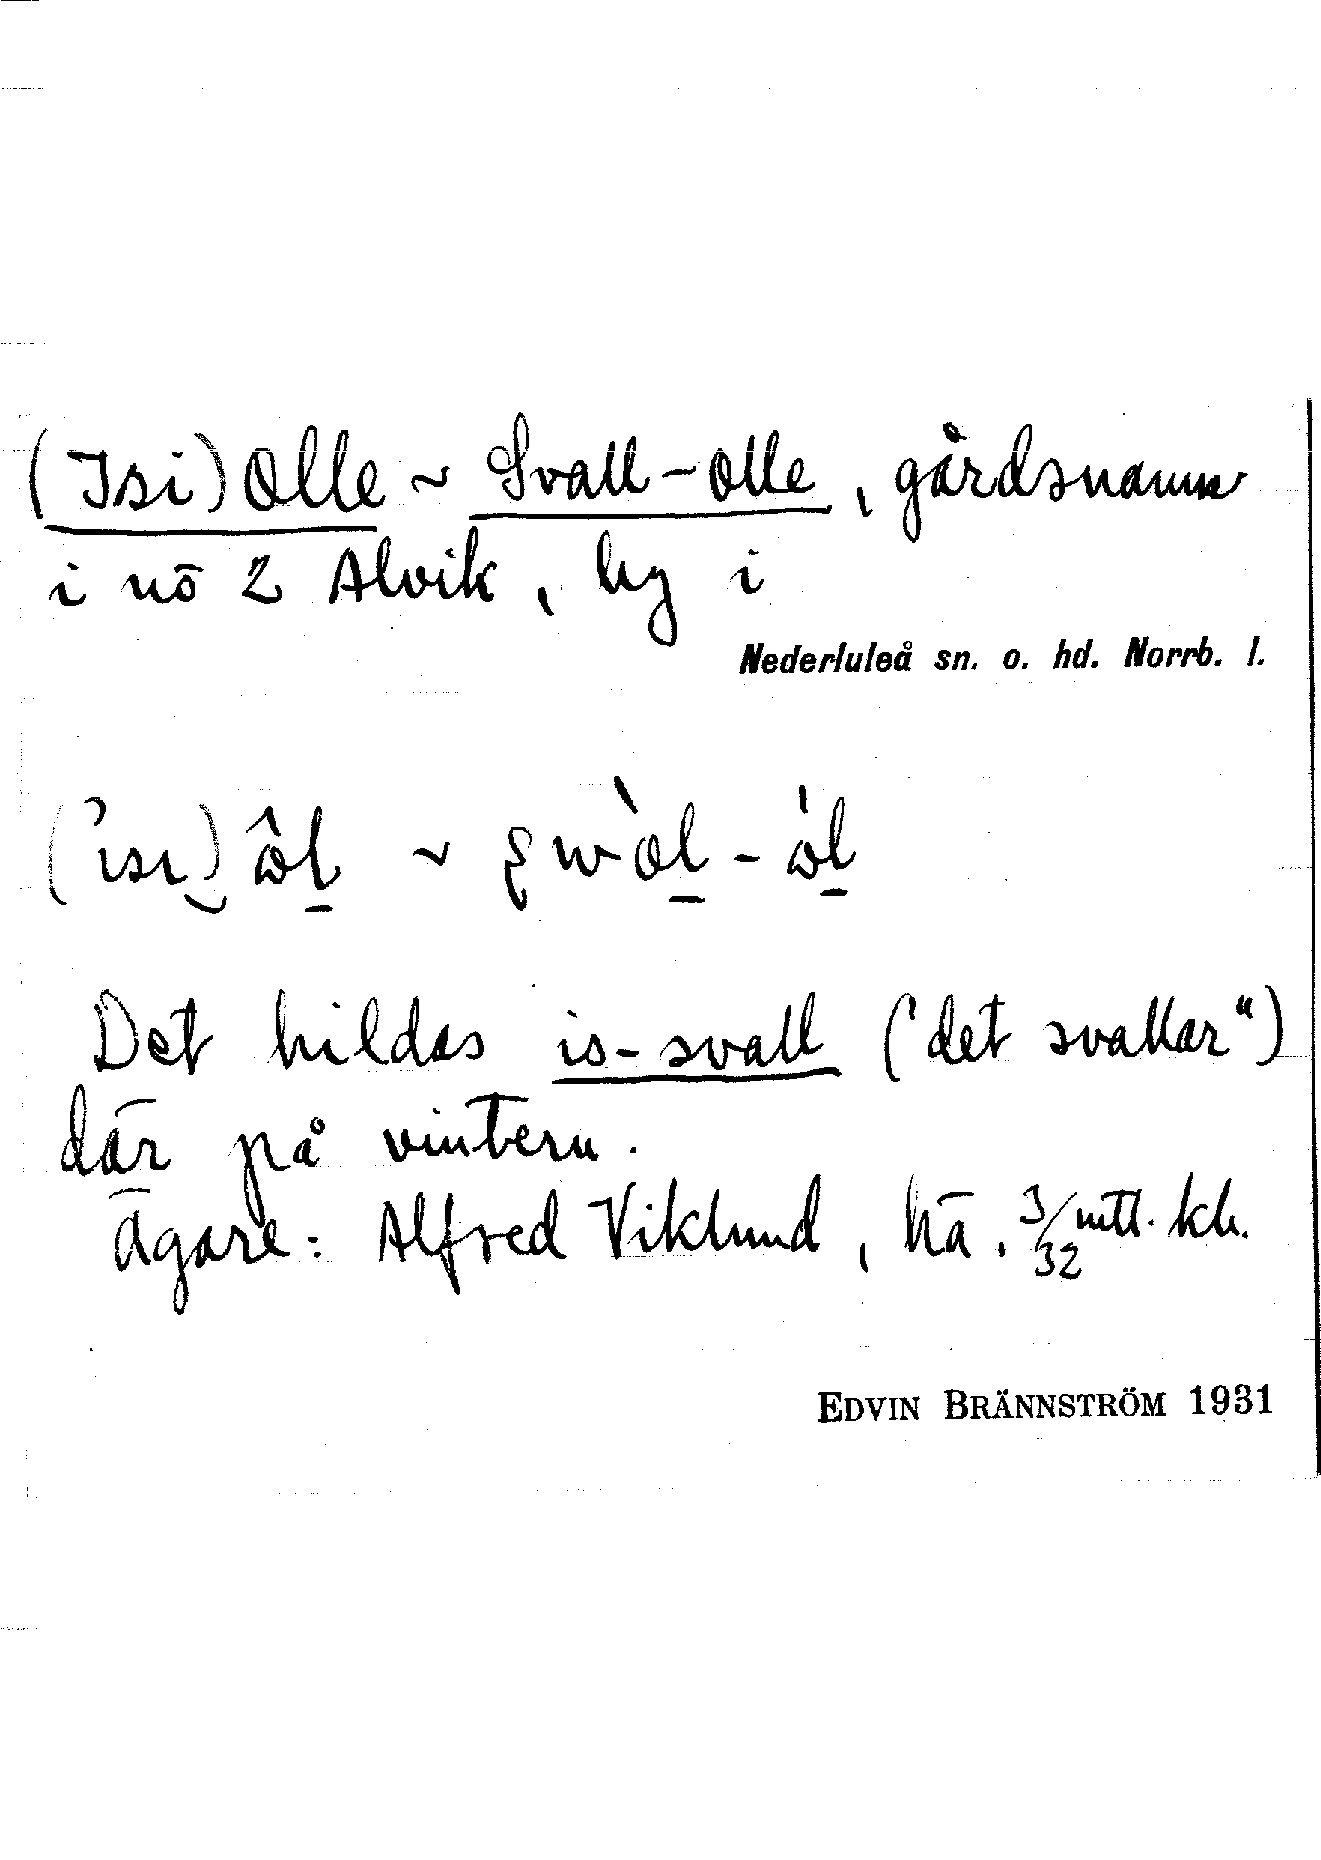 (Isi) Olle ~ Svall-Olle, gårdsnamn
i nö 2 Alvik, by i
Nederluleå sn. o. hd. Norrb. l.
Det bildas is-svall ("det svallar")
där på vintern.
Ägare: Alfred Viklund, hä, 3/32 mtl. kr.
EDVIN BRÄNNSTRÖM 1931